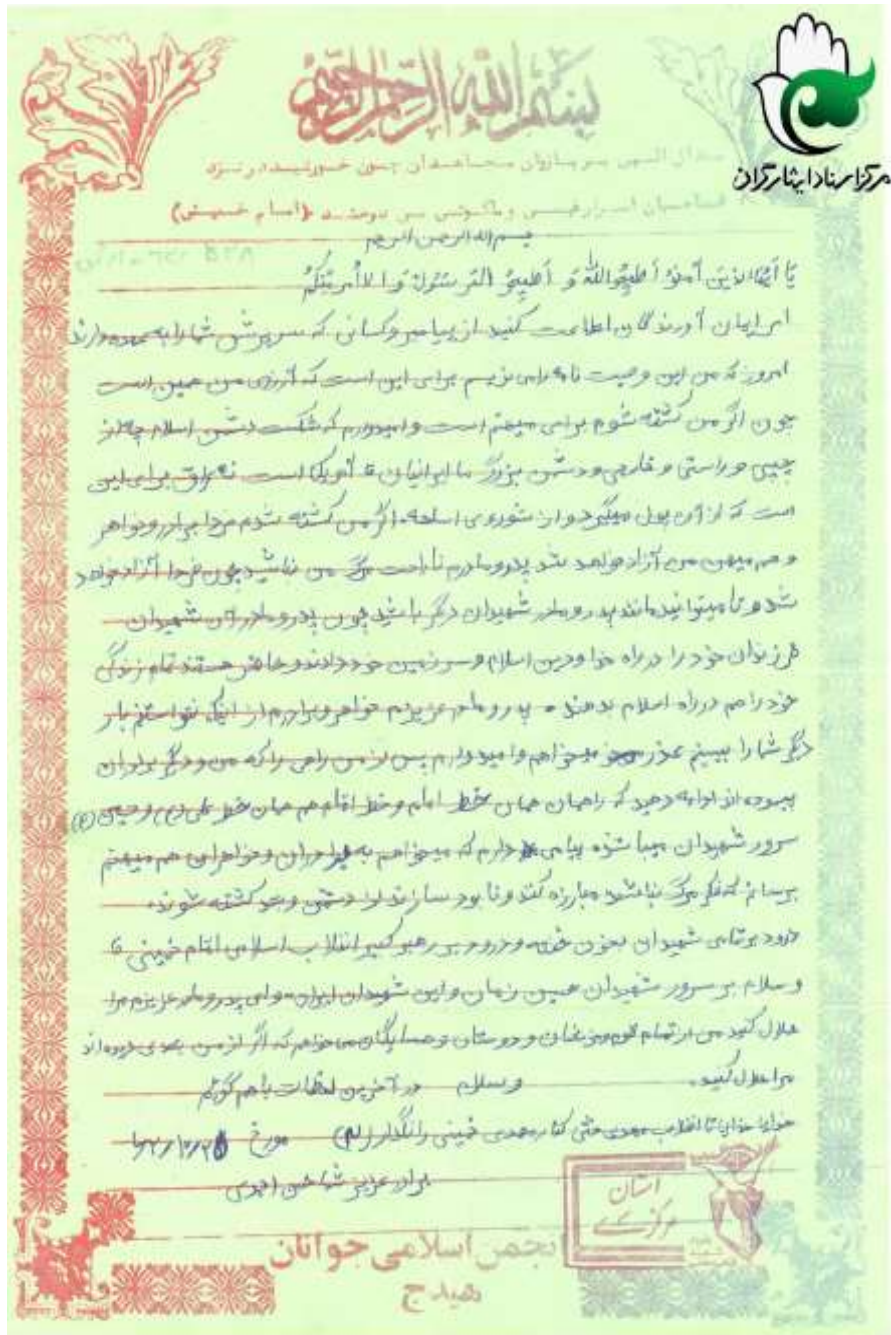 بسم الله الرحمن الرحیم
مرکز اسناد ایثارگران
مدال الهی بر بازوان مجاهدان چون خورشید در نزد
اسرار و ملکوتیان می درخشد (امام خمینی)
بسم اله الرحمن الرحیم
یا أیها الذین آمنو أطیعوالله و أطیعو الرسول و الاأمر منکم
ای ایمان آورندگان اطاعت کنید از پیامبر و کسانی که سرپرستی شما را به عهده دارند
امروز که من این وصیت نامه را می نویسم برای این است که آرزوی من همین است
چون اگر من کشته شوم برای میهنم است و امیدوارم که شکست دشمن اسلام چه از
چپی و راستی و خارجی و دشمن بزرگ ما ایرانیان آمریکا است نه عراق برای این
است که از آن پول میگیرد و از شوروی اسلحه. اگر من کشته شدم فردا برادر و خواهر
و هم میهن من آزاد خواهد شد پدر و مادرم ناراحت مرگ من نباشید چون فردا آزاد خواهد
شد و تا میتوانید مانند پدر و مادر شهیدان دیگر باشید چون پدر و مادر آن شهیدان
فرزندان خود را در راه خدا و دین اسلام و سرزمین خود دادند و حاضر هستند تمام زندگی
خود را هم در راه اسلام بدهند پدر و مادر عزیزم خواهر و برادرم از اینکه نتوانستم بار
دیگر شما را ببینم عذر میخواهم و امیدوارم پس از من راهی را که من و دیگر برادران
پیموده اند ادامه دهید که راهمان همان خط امام و خط امام هم همان خط علی (ع) و حسین (ع)
سرور شهیدان میباشد پیامی دارم که میخواهم به برادران و خواهرای هم میهنم
برسانم که فکر مرگ نباشید مبارزه کنند و نابود سازند دشمن کشته شوند.
درود بر تمامی شهیدان بخون خفته و درود بر رهبر کبیر انقلاب اسلامی امام خمینی
و سلام بر سرور شهیدان حسین زمان و این شهیدان ایران و ای پدر و مادر عزیزم مرا
حلال کنید من از تمام قوم و دوستان و همسایگان می خواهم که اگر از من بدی دیده اند
مرا حلال کنید. و سلام در آخرین لحظات باهم گوئیم
خدایا خدایا تا انقلاب مهدی حتی کنار مهدی خمینی را نگهدار مورخ
برادر عزیز شما احمدی
استان
مرکزی
انجمن اسلامی جوانان
هیدج